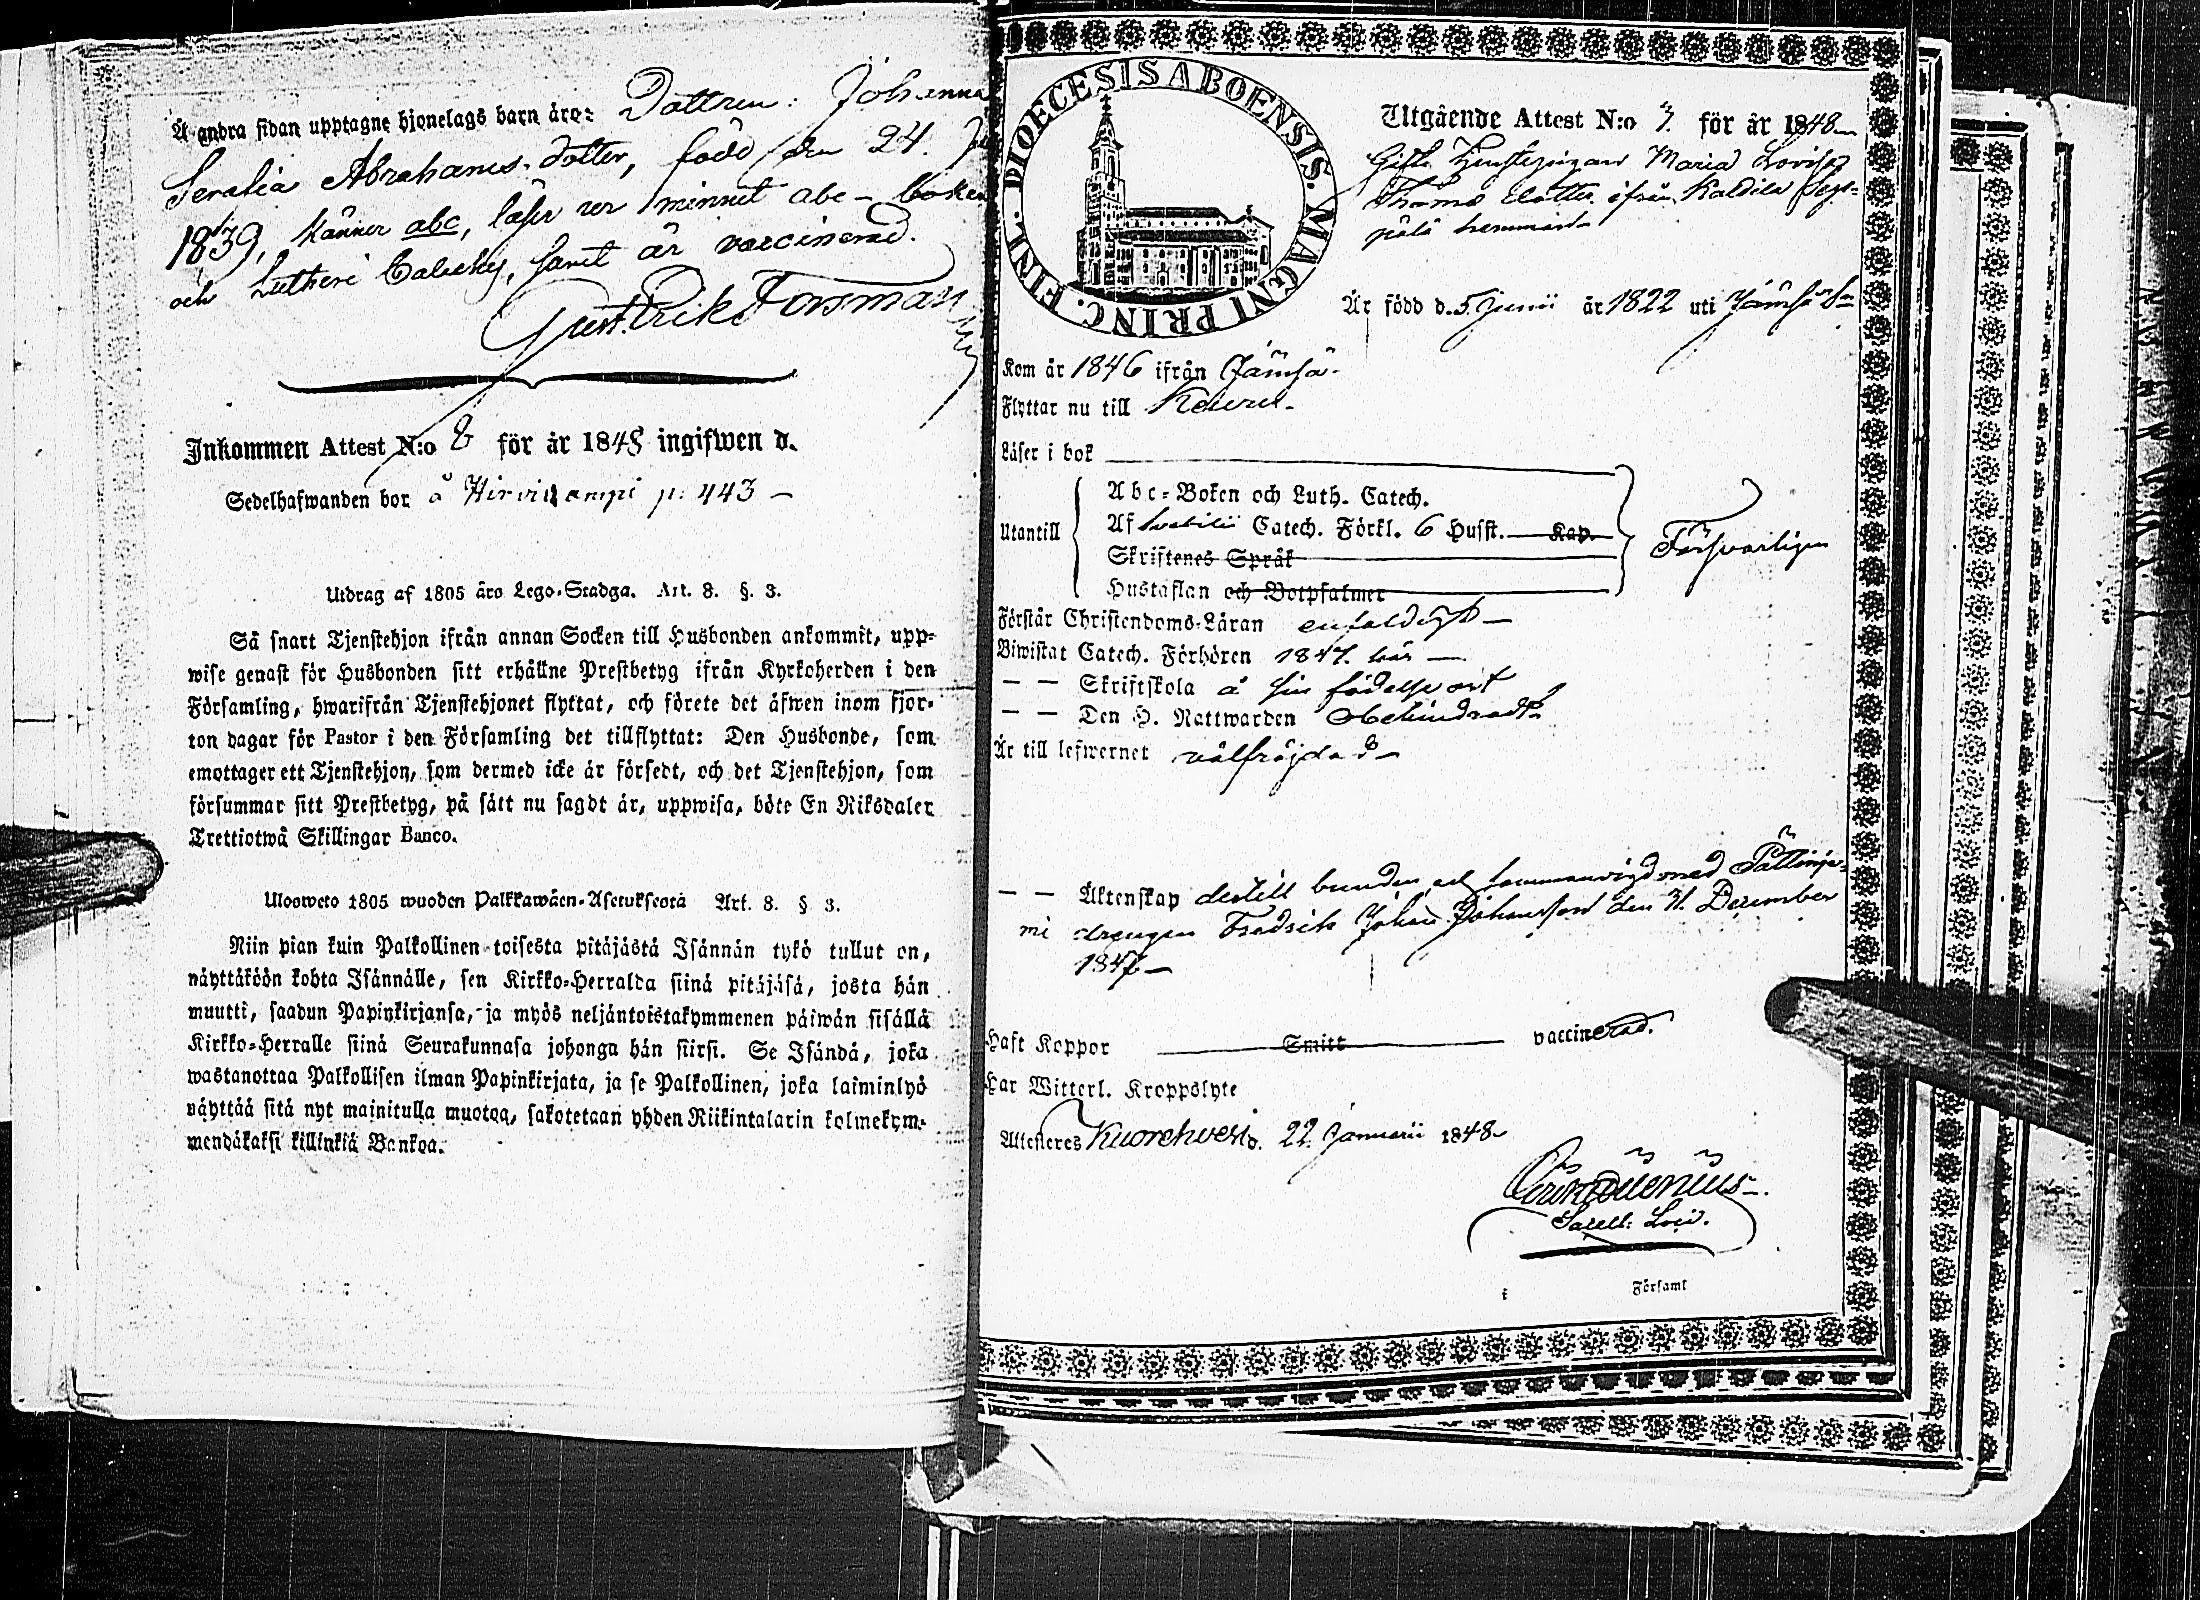 Å andra sidan upptagne hjonelags barn äro: Dottren: Johanna
Seralia Abrahams-dotter, född den 24.
1839, känner abc, läser ur minnet abc-boken
och Lutheri Cateches, samt är vaccinerad.
Gust. Erik Forsman
Inkommen Attest N:o 8 för år 1848 ingifwen d.
Sedelhafwanden bor å Hirvikampi p. 443 —
Utdrag af 1805 åro Lego-Stadga. Art. 8. §. 3.
Så snart Tjenstehjon ifrån annan Socken till Husbonden ankommit, upp-
wise genast för Husbonden sitt erhållne Prestbetyg ifrån Kyrkoherden i den
Församling, hwarifrån Tjenstehjonet flyttat, och förete det äfwen inom fjor-
ton dagar för Pastor i den Församling det tillflyttat: Den Husbonde, som
emottager ett Tjenstehjon, som dermed icke är försedt, och det Tjenstehjon, som
försummar sitt Prestbetyg, på sätt nu sagdt är, uppwisa, böte En Riksdaler
Trettiotwå Skillingar Banco.
Uloowcto 1805 wuoden Palkkawäen-Asetuksesta Art. 8. § 3.
Niin pian kuin Palkollinen toisesta pitäjästä Isännän tykö tullut on,
näyttäköön kohta Isännälle, sen Kirkko-Herralda siinä pitäjäsä, josta hän
muutti, saadun Papinkirjansa, ja myös neljäntoistakymmenen päiwän sisällä
Kirkko-Herralle siinä Seurakunnasa johonga hän siirsi. Se Isändä, joka
wastanottaa Palkollisen ilman Papinkirjata, ja se Palkollinen, joka laiminlyö
näyttää sitä nyt mainitulla muotoa, sakotetaan yhden Riikintalarin kolmekym-
mendäkaksi killinkiä Bankoa.
DIOECESIS ABOENSIS. MAGNI PRINC. FINL.
Utgående Attest N:o 7. för år 1848
Gifta Maria Lovisa
Thomas dotter ifrån Kaldila
hemman
Är född d. 5 Junii år 1822 uti Jämsä
Kom år 1846 ifrån Jämsä.
Flyttar nu till Keuru.
Läser i bok
Utantill
Abc-Boken och Luth. Catech.
Af Svebilii Catech. Förkl. 6 Husst. Kap.
Skriftenes Språk
Hustaflan och Botpsalmer
Försvarligen
Förstår Christendoms-Läran enfaldigt —
Biwistat Catech. Förhören 1847. här —
— — Skriftskola å sin födelseort
— — Den H. Nattwarden obehindradt
Är till lefwernet välfräjdad —
— — Äktenskap bunden och sammanvigd med
drängen Fredrik Johan Johansson den 31. December
1847 —
Haft Koppor Smitt vaccinerad.
Har Witterl. Kroppslyte
Attesteres Kuorehvesi d. 22. Januarii 1848
i Församl